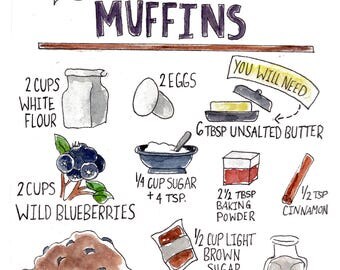 MUFFINS
2 CUPS
WHITE
FLOUR
2 EGGS
YOU WILL NEED
6 TBSP UNSALTED BUTTER
2 CUPS
WILD BLUEBERRIES
1/4 CUP SUGAR
+ 4 TSP.
2 1/2 TBSP
BAKING
POWDER
1/2 TSP
CINNAMON
1/2 CUP LIGHT
BROWN
SUGAR